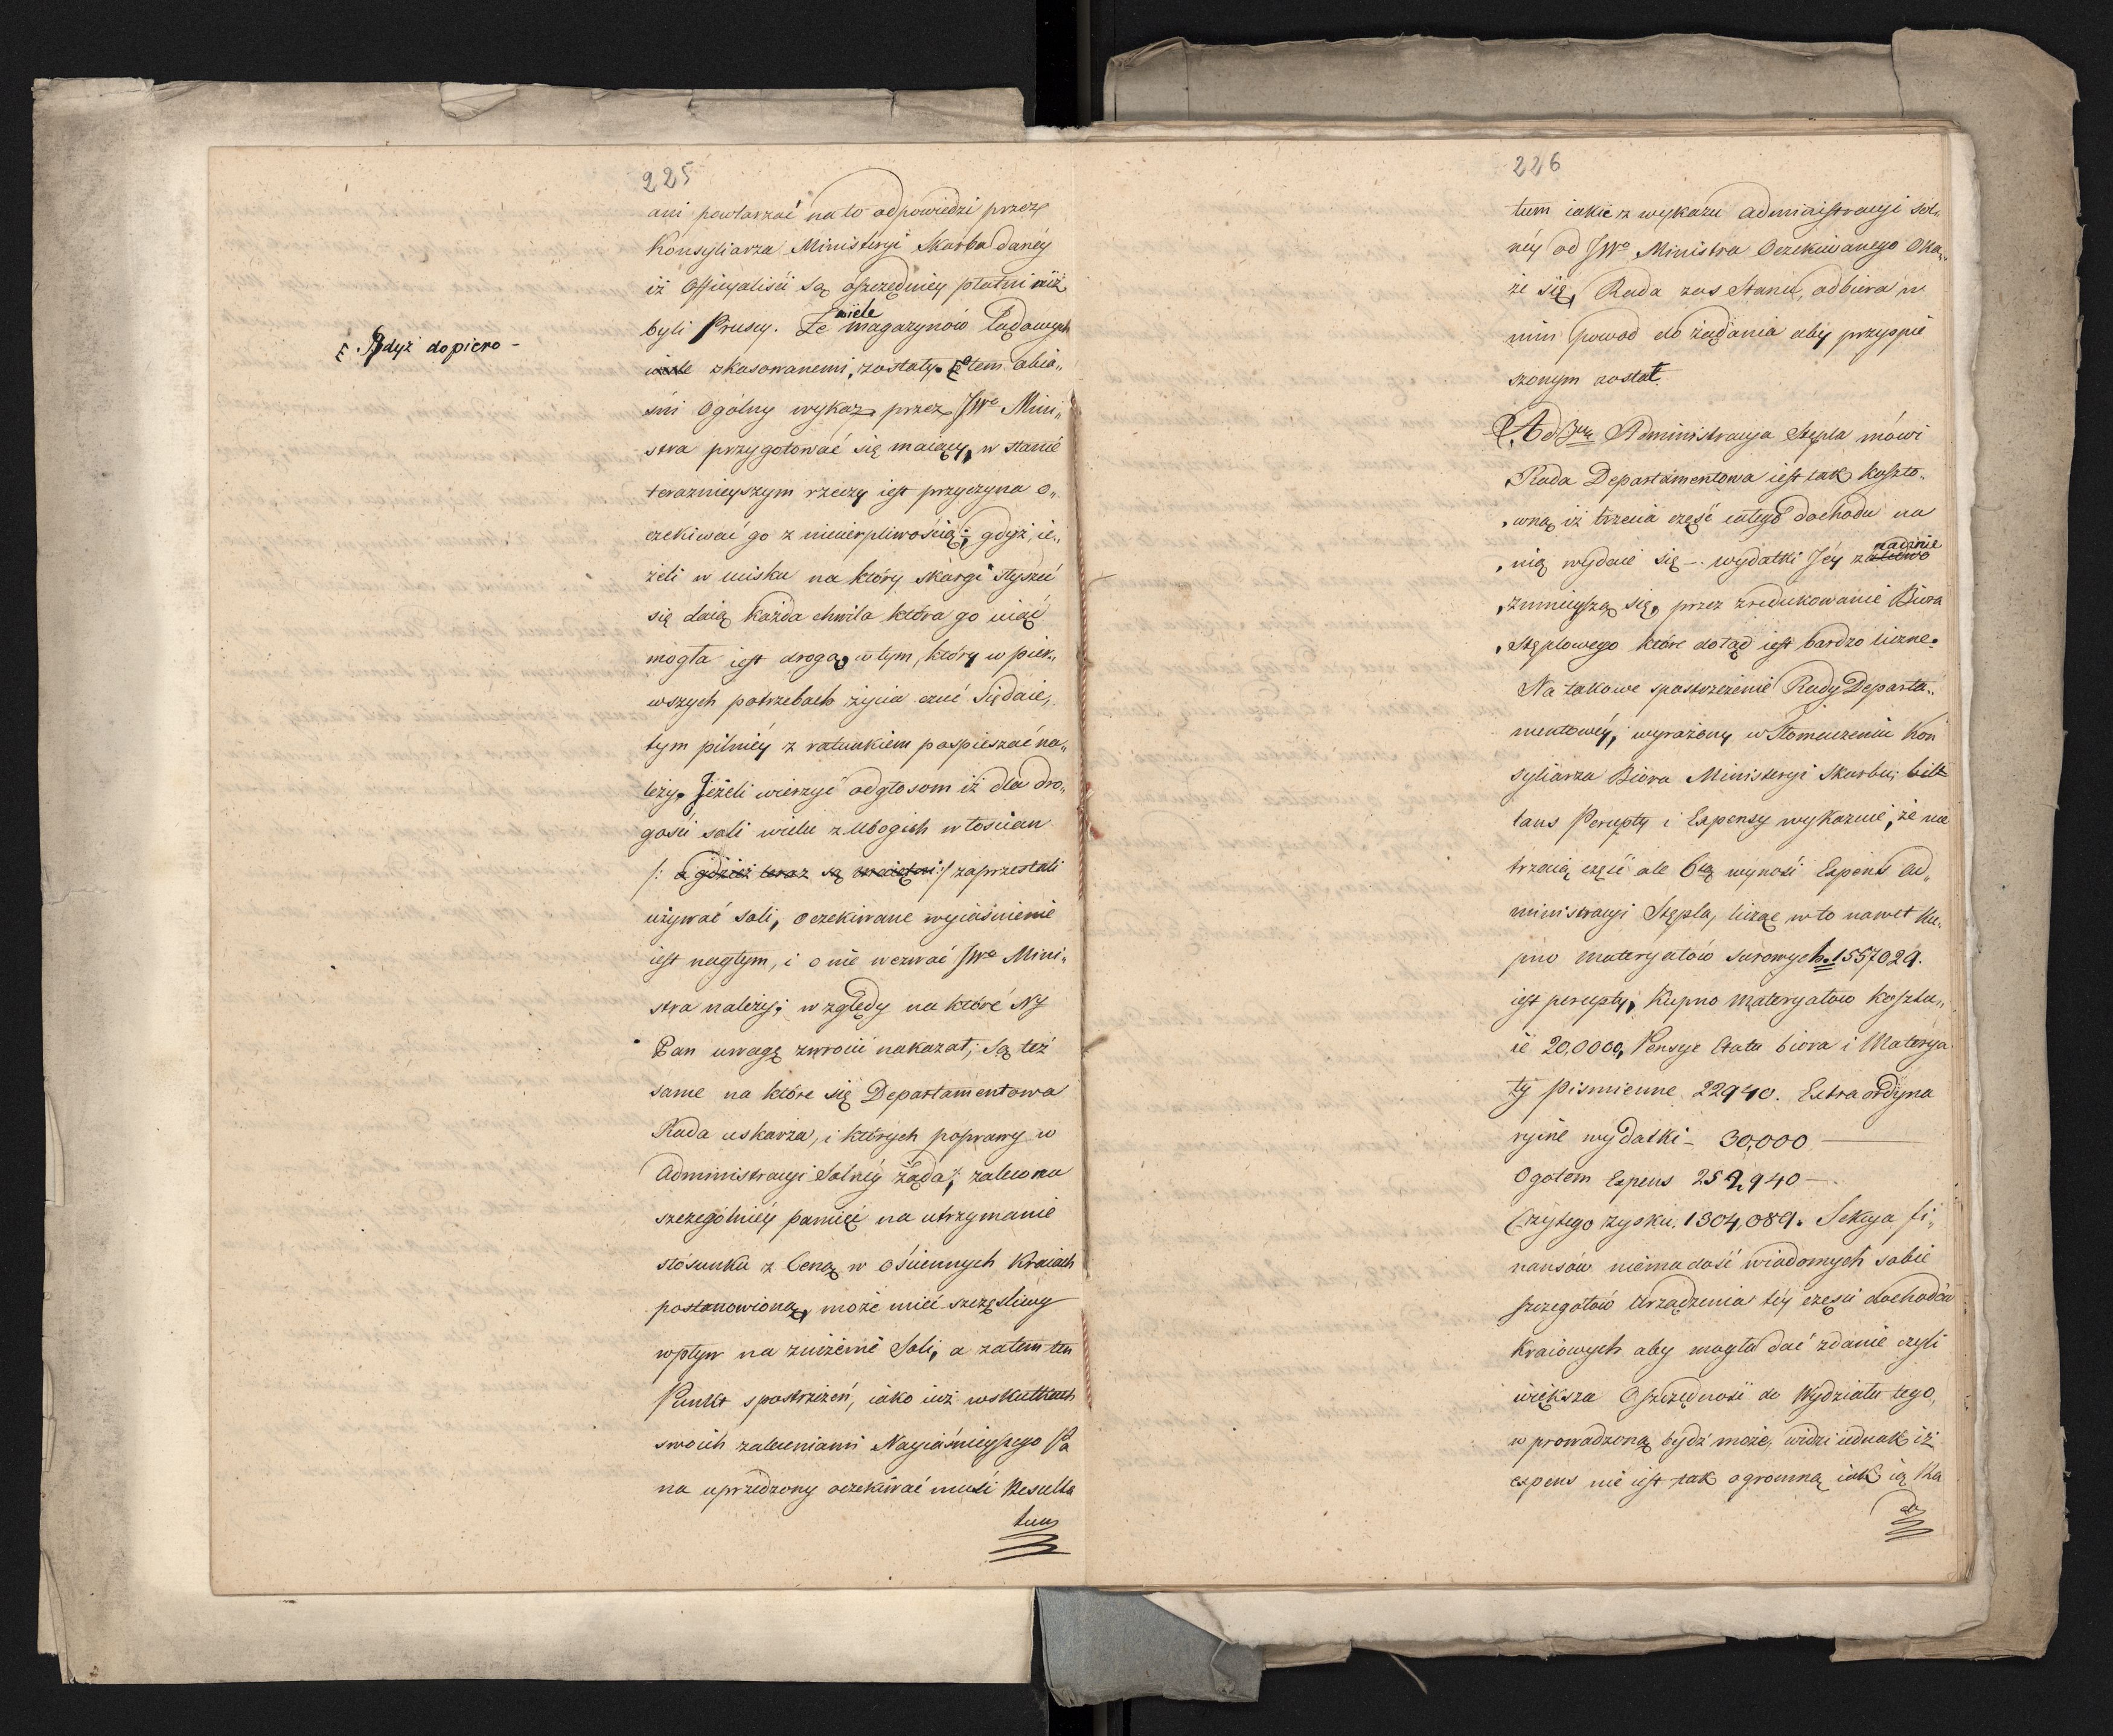 225
ani powtarzać na to odpowiedzi przez
Konsyliarza Ministeryi Skarbu daney
iż Officyaliści są oszczędniey płatni niż
byli Pruscy. Że wiele magazynów Lądowych
wiele skasowanemi, zostały. O tem obia„
⁅. Gdyż dopiero –
śni Ogólny wykaz przez JWo Mini„
stra przygotować się maiący, w stanie
teraznieyszym rzeczy iest przyczyna o„
czekiwać go z niecierpliwością; gdyż, ie„
żeli w ucisku na który skargi słyszeć
się daią każda chwila która go uiąć
mogła iest drogą, w tym, który w pier„
wszych potrzebach życia czuć się daie,
tym pilniéy z ratunkiem pospieszać na„
leży. Jeżeli wierzyć odgłosom iż dla dro„
gości soli wielu z Ubogich włościan
/: a gdzież teraz są :/ zaprzestali
używać soli, oczekiwane wyiaśnienie
iest nagłym, i o nie wezwać JWo Mini„
stra należy; względy na które NJ
Pan uwagę zwrócić nakazał, są też
same na które się Departamentowa
Rada uskarża, i których poprawy w
Administracyi Solnéy żąda; zalecona
szczególniéy pamięć na utrzymanie
stósunku z Ceną w ościennych Kraiach
postanowioną, może mieć szczęśliwy
wpływ na zniżenie Soli, a zatem ten
Punkt spostrzeżeń, iako iuż w skutkach
swoich zaleceniami Nayiaśnieyszego Pa
na uprzedzony oczekiwać musi Resulta
tum
226
tum iakie z wykazu administracyi sol„
néy od JWo Ministra Oczekiwanego Oka„
że się, Rada zas Stanu, odbiera w
nim powod do żądania aby przyspie
szonym został.
Ad 3um Administracya Stępla mówi
Rada Departamentowa iest tak koszto„
„wną iż trzecia część całego dochodu na
„nią wydaie się –. wydatki Jéy znacznie
„zmnieyszą się, przez zredukowanie Biura
„Stęplowego które dotąd iest bardzo liczne.
Na takowe spostrzeżenie Rady Departa„
mentowéy, wyrażony w Tłomaczeniu Kon
syliarza Biora Ministeryi Skarbu, bil
lans Percepty i Expensy wykazuie, że nie
trzecią część ale 6tą wynosi Expens Ad„
ministracyi Stępla, licząc w to nawet Ku„
pno materyałów surowych. 1557029.
iest percepty, Kupno Materyałow kosztu„
ie 20,0000, Pensye Etatu biora i Materya
ły piśmienne 22940. Extraordyna
ryine wydatki – 30,000 –
Ogołem Expens 252,940 –
Czystego zysku. 1304,089. Sekcya fi„
nansów niema dość wiadomych sobie
szczegołów Urządzenia téy części dochodów
Kraiowych aby mogła dać zdanie czyli
większa Oszczędność do Wydziału tego,
wprowadzoną bydź może, widzi iednak iż
expens nie iest tak ogromną iak ią Ra
da